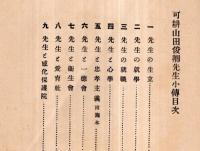 可耕山田俊卿先生小傳目次
一 先生の生立
二 先生の就學
三 先生の就職
四 先生と心學
五 先生と忠孝主義
六 先生と一德會
七 先生と衞生會
八 先生と愛育社
九 先生と感化保護院